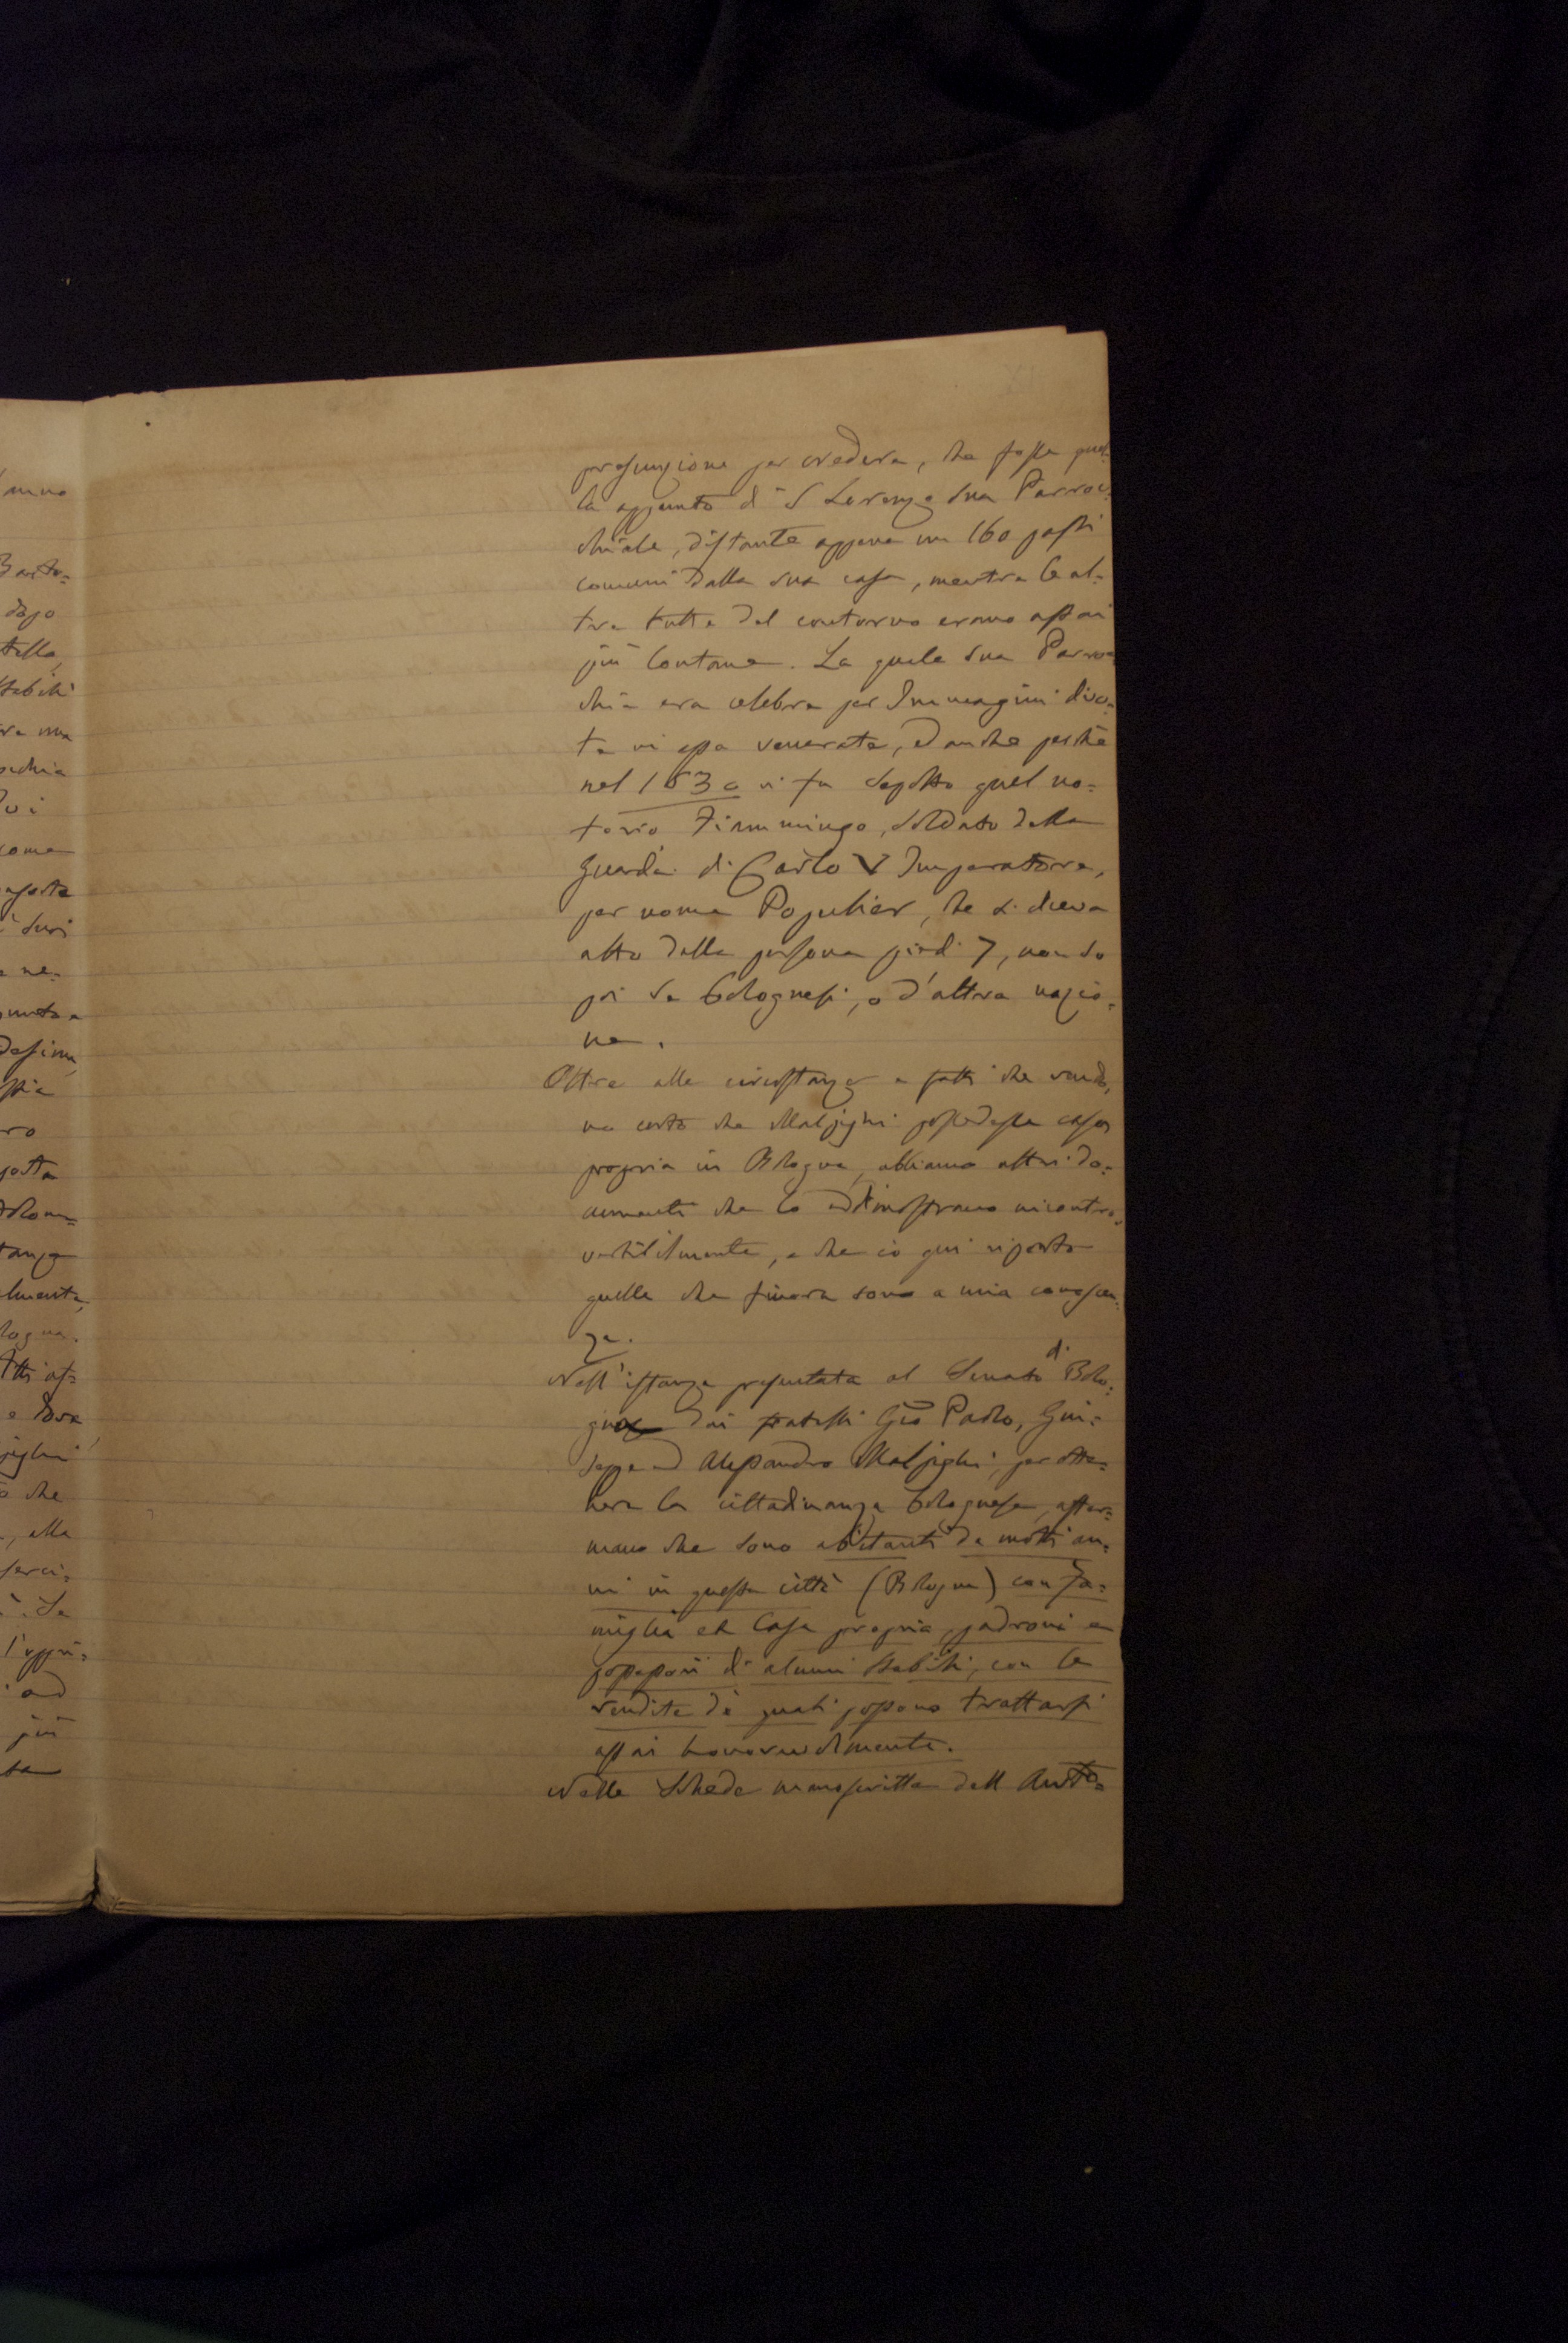 mno
Barto=
dopo
tello,
stabili
ra una
ochia
Ivi
come
uposta
suoi
ne=
desima,
ssia
ro
posta
tanza
lmente,
logna.
Atti as=
e dove
pighi
o che
, alla
serci=
Se
l'oppi=
ad
più
presunzione per credere, che fosse quel=
la appunto di S Lorenzo sua Parroc=
chiale, distante appena un 160 passi
comuni dalla sua casa, mentre le al=
tre tutte del contorno erano assai
più lontane. La quale sua Parroc=
chia era celebre per Immagini divo=
te in essa venerate, ed anche perché
nel 1630 vi fu sepolto quel no=
torio Fiammingo, soldato della
guardia di Carlo V Imperatore,
per nome Populier, che si diceva
alto della persona piedi 7, non so
poi se bolognesi, o d'altra nazio=
ne.
Oltre alle circostanze e fatti che rendo=
no certo che Malpighi possedesse casa
propria in Bologna, abbiamo altri do=
cumenti che lo addimostrano incontro=
vertibilmente, e che io qui riporto
quelle che finora sono a mia conoscen=
za.
Nell'istanza presentata al Senato di Bolo=
gna dai fratelli Gio Paolo, Giu=
seppe ed Alessandro Malpighi, per otte=
nere la cittadinanza bolognese, affer=
mano che sono abitanti da molti an=
ni in questa città (Bologna) con fa=
miglia et Casa propria, padroni e
possessori di alcuni stabili, con le
rendite dè quali possono trattarsi
assai honorevolmente.
Nelle Schede manoscritte dell'Auto=